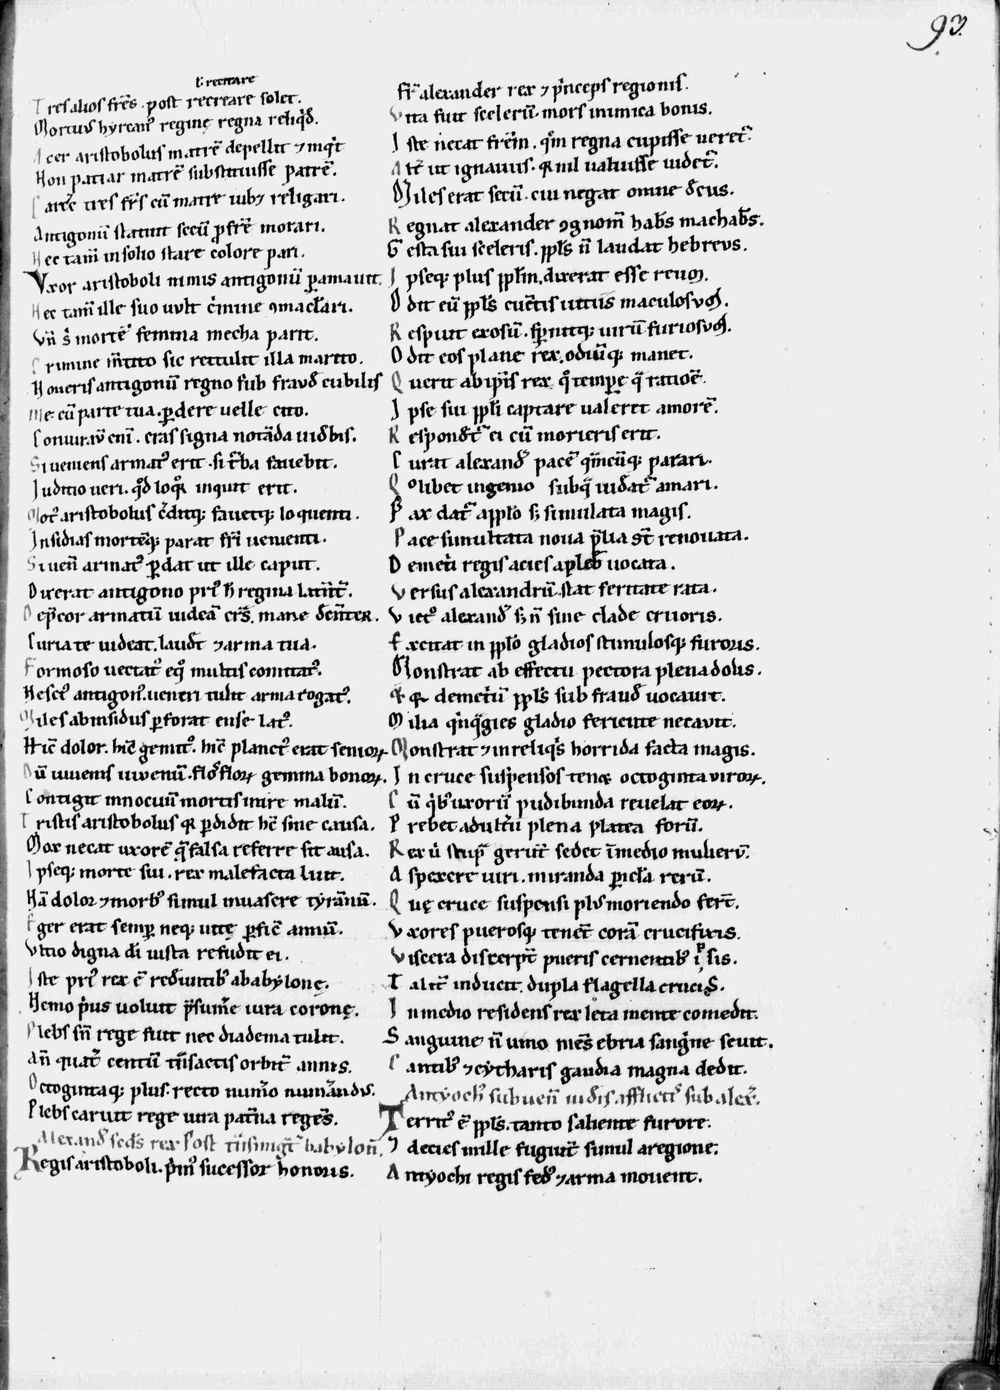 93.
ł recitare
Tres alios fr̄es. post recreare solet.
Mortuus hyrcanus regine regna reliqđ.
Acer aristobolus matrē depellit ⁊ inqͥt
Non patiar matrē substituisse patrē.
Carcē tres fr̄s cū matre iubꝫ religari.
Antigonū statuit secū ꝓ fr̄e morari.
Nec tam̄ in solio stare colore pari.
Vxor aristoboli nimis antigonū ꝑamauit.
Nec tam̄ ille suo uult cͥmine ꝯmacľari.
Vn̄ s̄ mortē femina mecha parit.
Crimine m̄tito sic rettulit illa marito.
Moueris antigonū regno sub fraud̄ cubilis
Me cū parte tua. ꝑdere uelle cito.
Coniurauͭ enī. cras signa notāda uid̄bis.
Si ueniens armatꝰ erit. si t̄ba fauebit.
Iuditio ueri. qđ loqͦr inquit erit.
Motꝰ aristobolus c̄ditqꝫ fauetqꝫ loquenti.
Insidias mortēqꝫ parat fr̄i uenienti.
Si ueñ armatꝰ ꝑdat ut ille caput.
Dixerat antigono prͥꝰ h̄ regina latint̄.
Deꝓcor armatū uideā c̄s. mane decenter.
Curia te uideat. laudet ⁊ arma tua.
Formoso uectatꝰ eqͦ multis comitatꝰ.
Nescͥꝰ antigonꝰ. ueneri tulit arma rogatꝰ.
Miles ab insidiis ꝑforat ense latꝰ.
Hic̄ dolor. hic̄ gemitꝰ. hic̄ planctꝰ erat senioꝝ.
Dū uiuenis iuuenū. flos floꝝ gemma bonoꝝ.
Contigit innocuū mortis inire malū.
Tristis aristobolus qꝫ ꝑdidit hc̄ sine causa.
Mox necat uxorē q̄ falsa referre sit ausa.
Ipseqꝫ morte sui. rex malefacta luit.
Nā dolor ⁊ morbꝰ simul inuasere tyrānū.
Eger erat semꝑ neqꝫ uitę ꝑficͥ annū.
Vltio digna dī iusta refudit ei.
Iste prͥꝰ rex ē redeuntibꝰ a babylonę.
Nemo pͥus uoluit p̄sum̄e iura coronę.
Plebs sn̄ rege fuit nec diadema tulit.
Añ quatꝰ centū tn̄sactis orbit̄ annis.
Octogintaqꝫ plus. recto num̄o num̄andus.
Plebs caruit rege uira pat̄na regēs.
Alexand̄ secd̄s rex post tn̄smigr̄ babylon̄.
Regis aristoboli. pͥmꝰ sucessor honoris.
Fr̄ alexander rex ⁊ pͥnceps regionis.
Vita fuit scelerū. mors inimica bonis.
Iste necat fr̄em. qm̄ regna cupisse ueretꝰ.
Alt̄ ut ignauus. qꝫ nil ualuisse uidetꝰ.
Miles erat secū. cui negat omne decus.
Regnat alexander ꝯgnom̄ habēs machabeꝰs.
Gesta sui sceleris. ppl̄s n̄ laudat hebreus.
Ipseqꝫ plus ppl̄m. dixerat esse reum.
Odit eū ppl̄s cuc̄tis uitiis maculosum.
Respuit exosū. spͥnitqꝫ uirū furiosum.
Odit eos plane rex. odiūqꝫ manet.
Querit ab ipīs rex qͦ tempe q̄ ratiōe.
Ipse sui ppl̄i captare ualeret amorē.
Respond̄t ei cū morieris erit.
Curat alexand̄ pacē qm̄cūqꝫ parari.
Qolibet ingenio subqͣ uid̄atꝰ amari.
Pax datꝰ a pplo sꝫ simulata magis.
Pace simultata noua p̄lia st̄ renouata.
Demet̄i regis acies a plebe uocata.
Versus alexandrū. stat feritate rata.
Victꝰ alexand̄ sꝫ n̄ sine clade cruoris.
Excitat in pplo gladios stimulosqꝫ furoris.
Monstrat ab effectu pectora plena dolis.
Et qꝫ demet̄ū ppl̄s sub fraud̄ uocauit.
Milia qͥnq̄gies gladio feriente necauit.
Monstrat ⁊ in reliqͥs horrida facta magis.
In cruce suspensos tenqꝫ octoginta viroꝝ.
Cū qͥbꝰ uxorū pudibunda reuelat eoꝝ.
Prebet adult̄ū plena platea forū.
Rex ū stupͣ gerūt̄ sedet ī medio mulierū.
Aspexere uiri. miranda ꝑicľa rerū.
Quę cruce suspensi plus moriendo ferēt.
Vxores puerosqꝫ tenēt corā crucifixis.
Viscera discerpt̄ pueris cernentibꝰ ipͥsis.
Talit̄ induciͭ. dupla flagella crucis.
In medio residens rex leta mente comedit.
Sanguine n̄ uino mēs ebria sangͥne seuit.
Cantibꝰ ⁊ cytharis gaudia magna dedit.
Antyochꝰ subuen̄ iud̄is afflictͥs sub alex̄.
Territꝰ ē ppl̄s. tanto saliente furore.
⁊ decies mille fugiūt simul a regione.
Antyochi regis fedꝰ ⁊ arma mouent.